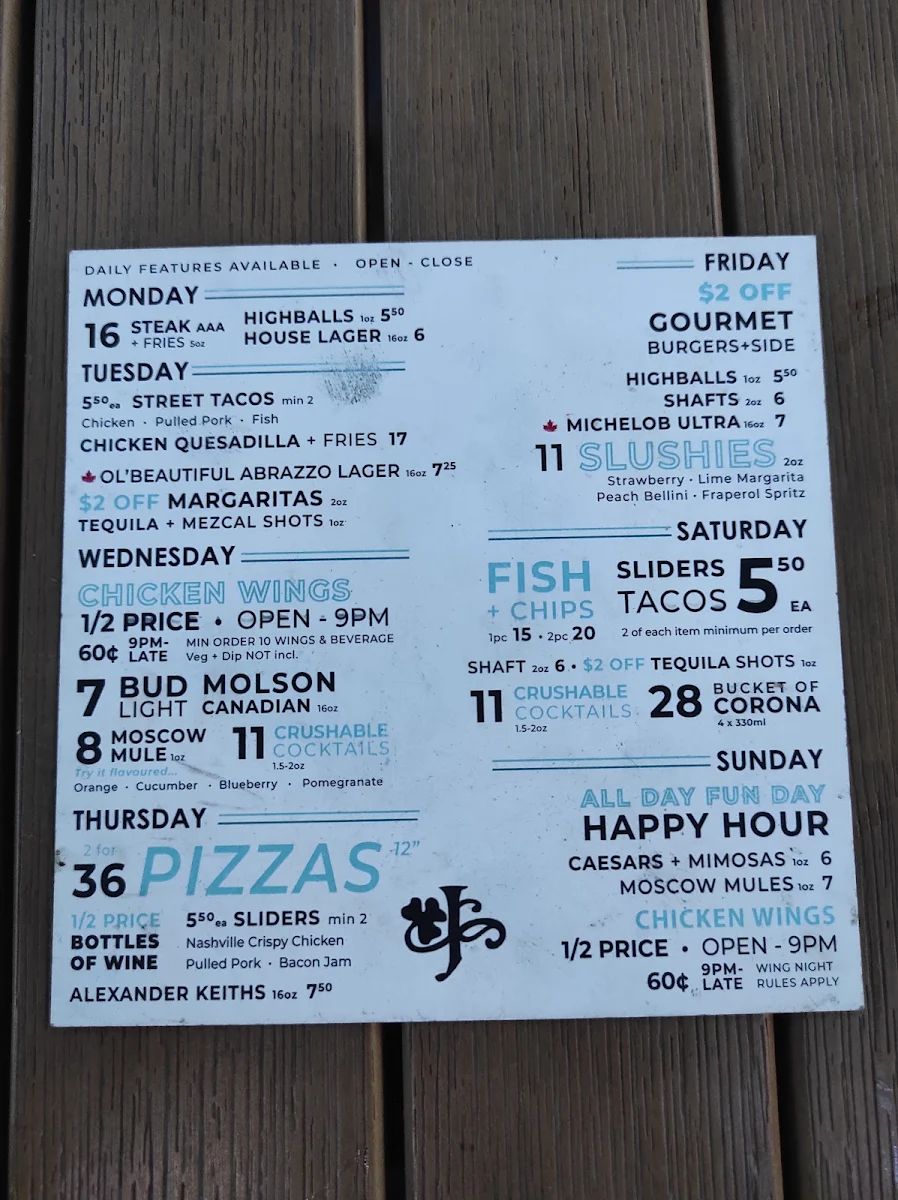 DAILY FEATURES AVAILABLE · OPEN - CLOSE
MONDAY
16 STEAK AAA
+ FRIES 5oz
HIGHBALLS 1oz 5⁵⁰
HOUSE LAGER 16oz 6
TUESDAY
5⁵⁰ea STREET TACOS min 2
Chicken · Pulled Pork · Fish
CHICKEN QUESADILLA + FRIES 17
OL'BEAUTIFUL ABRAZZO LAGER 16oz 7²⁵
$2 OFF MARGARITAS 2oz
TEQUILA + MEZCAL SHOTS 1oz
WEDNESDAY
CHICKEN WINGS
1/2 PRICE • OPEN - 9PM
60¢ 9PM-
LATE
MIN ORDER 10 WINGS & BEVERAGE
Veg + Dip NOT incl.
7 BUD
LIGHT
MOLSON
CANADIAN 16oz
8 MOSCOW
MULE 1oz
11 CRUSHABLE
COCKTAILS
1.5-2oz
Try it flavoured...
Orange · Cucumber · Blueberry · Pomegranate
THURSDAY
2 for
36 PIZZAS 12”
1/2 PRICE
BOTTLES
OF WINE
5⁵⁰ea SLIDERS min 2
Nashville Crispy Chicken
Pulled Pork · Bacon Jam
ALEXANDER KEITHS 16oz 7⁵⁰
FRIDAY
$2 OFF
GOURMET
BURGERS+SIDE
HIGHBALLS 1oz 5⁵⁰
SHAFTS 2oz 6
MICHELOB ULTRA 16oz 7
11 SLUSHIES 2oz
Strawberry · Lime Margarita
Peach Bellini · Fraperol Spritz
SATURDAY
FISH
+ CHIPS
1pc 15 · 2pc 20
SLIDERS
TACOS
5⁵⁰ EA
2 of each item minimum per order
SHAFT 2oz 6 • $2 OFF TEQUILA SHOTS 1oz
11 CRUSHABLE
COCKTAILS
1.5-2oz
28 BUCKET OF
CORONA
4 x 330ml
SUNDAY
ALL DAY FUN DAY
HAPPY HOUR
CAESARS + MIMOSAS 1oz 6
MOSCOW MULES 1oz 7
CHICKEN WINGS
1/2 PRICE • OPEN - 9PM
60¢ 9PM-
LATE
WING NIGHT
RULES APPLY